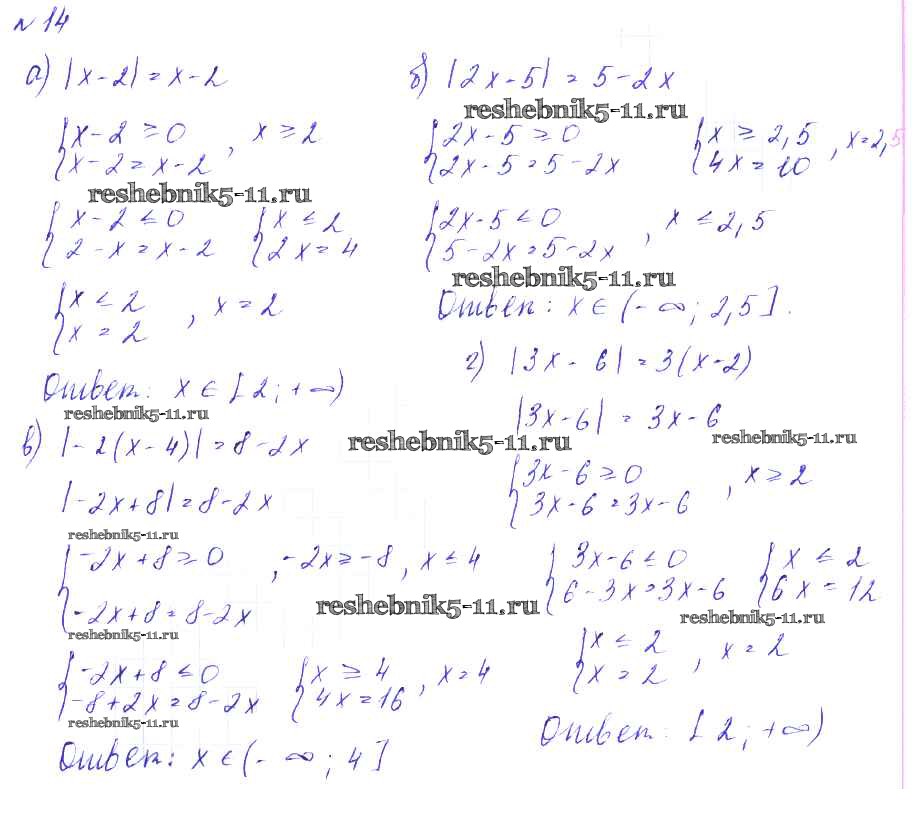 № 14
а) |x-2| = x-2
{x-2 ≥ 0
{x-2 = x-2 , x ≥ 2
reshebnik5-11.ru
{x-2 ≤ 0
{2-x = x-2
{x ≤ 2
{2x = 4
{x ≤ 2
{x = 2 , x = 2
Ответ: x ∈ [2; +∞)
reshebnik5-11.ru
б) |2x-5| = 5-2x
reshebnik5-11.ru
{2x-5 ≥ 0
{2x-5 = 5-2x
{x ≥ 2,5
{4x = 10 , x = 2,5
{2x-5 ≤ 0
{5-2x = 5-2x , x ≤ 2,5
reshebnik5-11.ru
Ответ: x ∈ (-∞; 2,5].
в) |-2(x-4)| = 8-2x
reshebnik5-11.ru
|-2x+8| = 8-2x
reshebnik5-11.ru
{-2x+8 ≥ 0 , -2x ≥ -8 , x ≤ 4
{-2x+8 = 8-2x
reshebnik5-11.ru
reshebnik5-11.ru
{-2x+8 ≤ 0
{-8+2x = 8-2x
{x ≥ 4
{4x = 16 , x = 4
reshebnik5-11.ru
Ответ: x ∈ (-∞; 4]
г) |3x-6| = 3(x-2)
|3x-6| = 3x-6
reshebnik5-11.ru
{3x-6 ≥ 0
{3x-6 = 3x-6 , x ≥ 2
{3x-6 ≤ 0
{6-3x = 3x-6
{x ≤ 2
{6x = 12
reshebnik5-11.ru
{x ≤ 2
{x = 2 , x = 2
Ответ: [2; +∞)